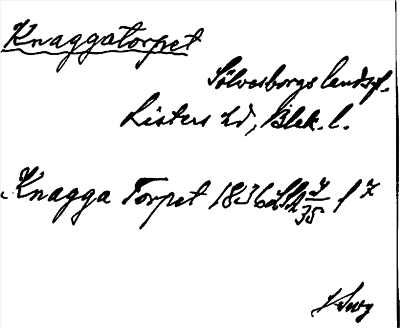 Knaggatorpet
Sölvesborgs landsf.
Listers hd, Blek. l.
Knagga Torpet 1836 LSA 7/35 f 7